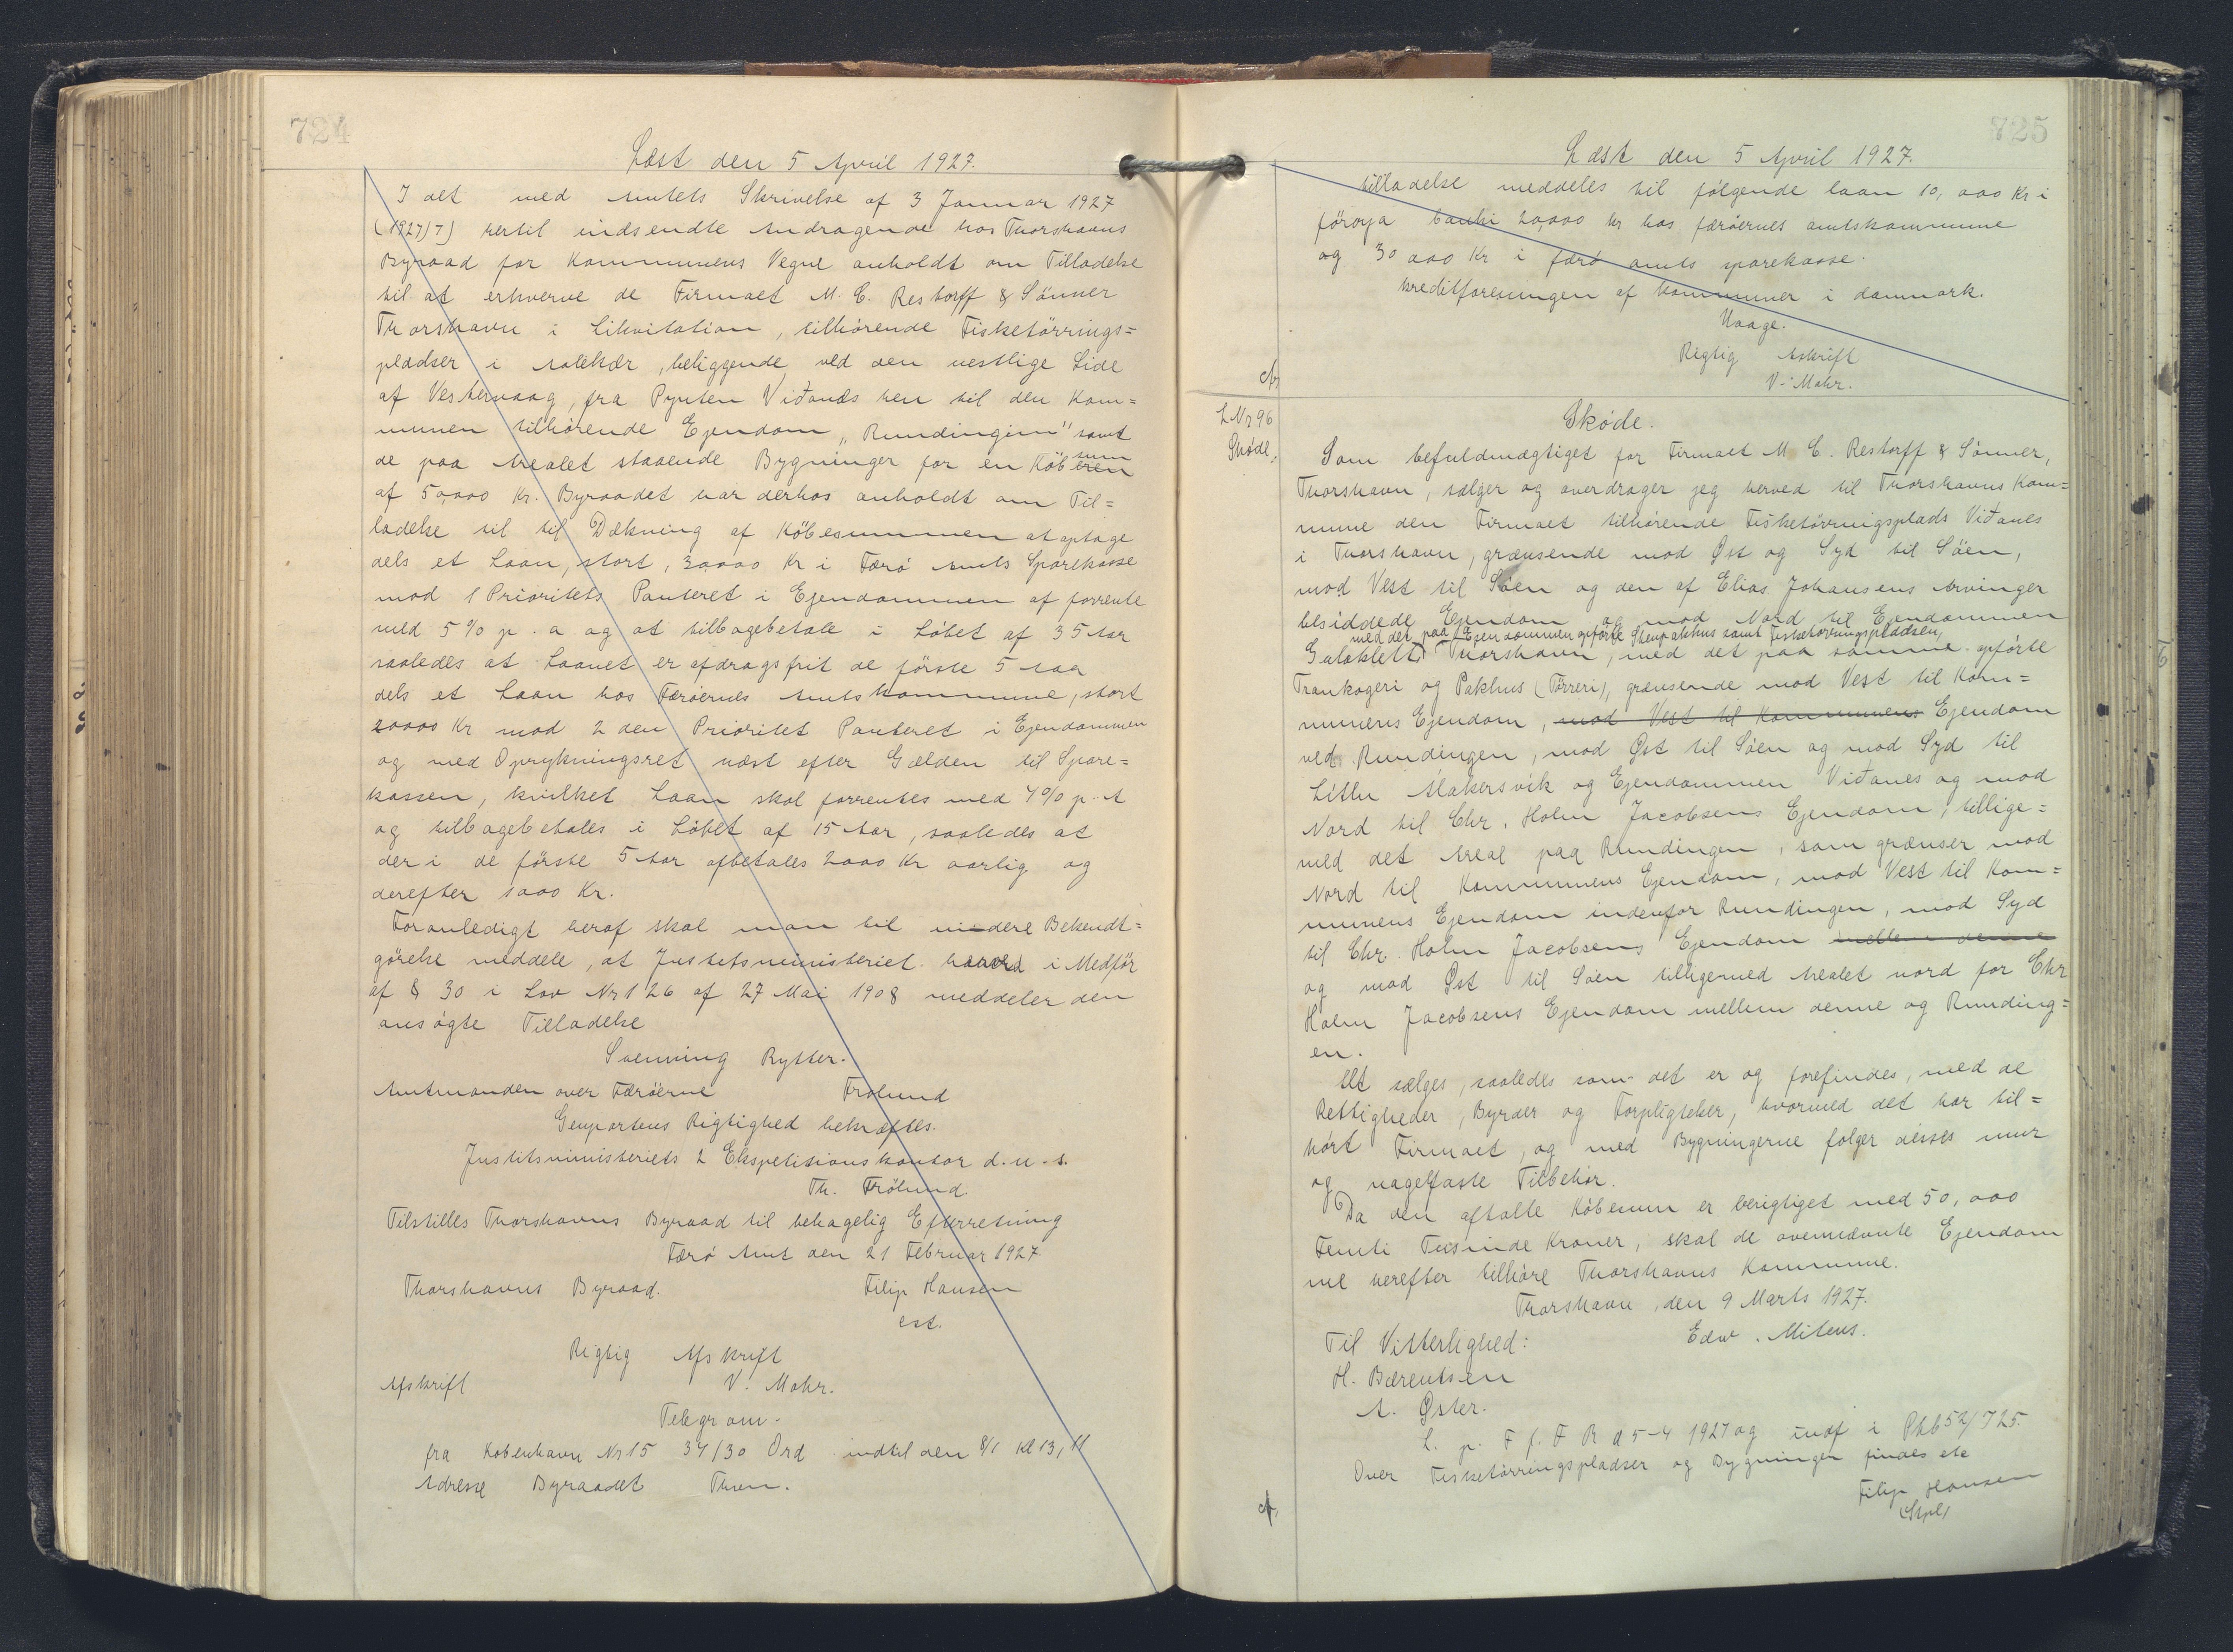 724
Læst den 5 April 1927.
I det med Amtets Skrivelse af 3 Januar 1927
(1927/7) hertil indsendte Andragende har Thorshavns
Byraad for Kommunens Vegne anholdt om Tilladelse
til at erhverve de Firmaet M. C. Restorff & Sönner
Thorshavn i Likvitation, tilhörende Fisketörrings=
pladser i Aalekær, beliggende ved den vestlige Side
af Vestervaag, fra Pynten Viðanes hen til den Kom=
munen tilhörende Ejendom „Rundingin" samt
de paa Arealet staaende Bygninger for en Köbesum
af 50,000 Kr. Byraadet har derhos anholdt om Til=
ladelse til til Dækning af Köbesummen at optage
dels et Laan, stort, 30000 Kr i Færö Amts Sparekasse
mod 1 Prioritets Panteret i Ejendommen af forrente
med 5% p. a og at tilbagebetale i Löbet af 35 Aar
saaledes at Laanet er afdragsfrit de förste 5 Aar
dels et Laan hos Færöernes Amtskommune, stort
20000 Kr mod 2 den Prioritet Panteret i Ejendommen
og med Oprykningsret næst efter Gælden til Spare=
kassen, hvilket Laan skal forrentes med 4% p. A
og tilbagebetales i Löbet af 15 Aar, saaledes at
der i de förste 5 Aar afbetales 2000 Kr aarlig og
derefter 1000 Kr.
Foranledigt heraf skal man til videre Bekendt=
görelse meddele, at Justitsministeriet herved i Medför
af § 30 i Lov Nr 126 af 27 Mai 1908 meddeler den
ansögte Tilladelse
Svenning Rytter.
Amtmanden over Færöerne Frölund
Genpartens Rigtighed bekræftes.
Justitsministeriets 2 Ekspetitionskontor d. u. s.
Th. Frölund.
Tilstilles Thorshavns Byraad til behagelig Efterretning
Færö Amt den 21 Februar 1927.
Thorshavns Byraad. Filip Hansen
cst.
Rigtig Afskrift
Afskrift V. Mohr.
Telegram.
fra Kobenhavn Nr 15 34/30 Ord indtil den 8/1 Kl 13,11
Adresse Byraadet Thvn.
725
Læst den 5 April 1927.
tilladelse meddeles til fölgende laan 10,000 Kr i
föroya banki 20,000 kr hos færöernes amtskommune
og 30 000 Kr i færö amts sparekasse.
kreditforeningen af kommuner i danmark.
Haage.
Rigtig Askrift
V. Mohr.
L Nr 96
Sköde.
Sköde.
Som befuldmægtiget for Firmaet M. C. Restorff & Sönner,
Thorshavn, sælger og overdrager jeg herved til Thorshavns Kom=
mune den Firmaet tilhörende Fisketörringsplads Viðanes
i Thorshavn, grænsende mod Øst og Syd til Söen,
mod Vest til Söen og den af Elias Johansens Arvinger
besiddede Ejendom og mod Nord til Ejendommen
med det paa Ejendommen opförte Stenpakhus samt Fisketörringspladsen,
Gulaklett Thorshavn, med det paa samme opförte
Trankogeri og Pakhus (Törreri), grænsende mod Vest til Kom=
munens Ejendom, mod Vest til Kommunens Ejendom
ved Rundingen, mod Øst til Söen og mod Syd til
Litlu Álakersvík og Ejendommen Viðanes og mod
Nord til Chr. Holm Jacobsens Ejendom, tillige=
med det Areal paa Rundingen, som grænser mod
Nord til Kommunens Ejendom, mod Vest til Kom=
munens Ejendom indenfor Rundingen, mod Syd
til Chr. Holm Jacobsens Ejendom mellem denne
og mod Øst til Söen tilligemed Arealet nord for Chr
Holm Jacobsens Ejendom mellem denne og Runding=
en.
Alt sælges, saaledes som det er og forefindes, med de
Rettigheder, Byrder og Forpligtelser, hvormed det har til=
hört Firmaet, og med Bygningerne fölger disses mur
og nagelfaste Tilbehör.
Da den aftalte Köbesum er berigtiget med 50,000
Femti Tusinde Kroner, skal de ovennævnte Ejendom
me herefter tilhöre Thorshavns Kommune.
Thorshavn, den 9 Marts 1927.
Til Vitterlighed: Edw. Mitens.
H. Bærentsen
A. Øster.
L. p. F f. F R d 5-4 1927 og indf i Pkb 52/725.
Over Fisketörringspladser og Bygninger findes ete
Filip Hansen